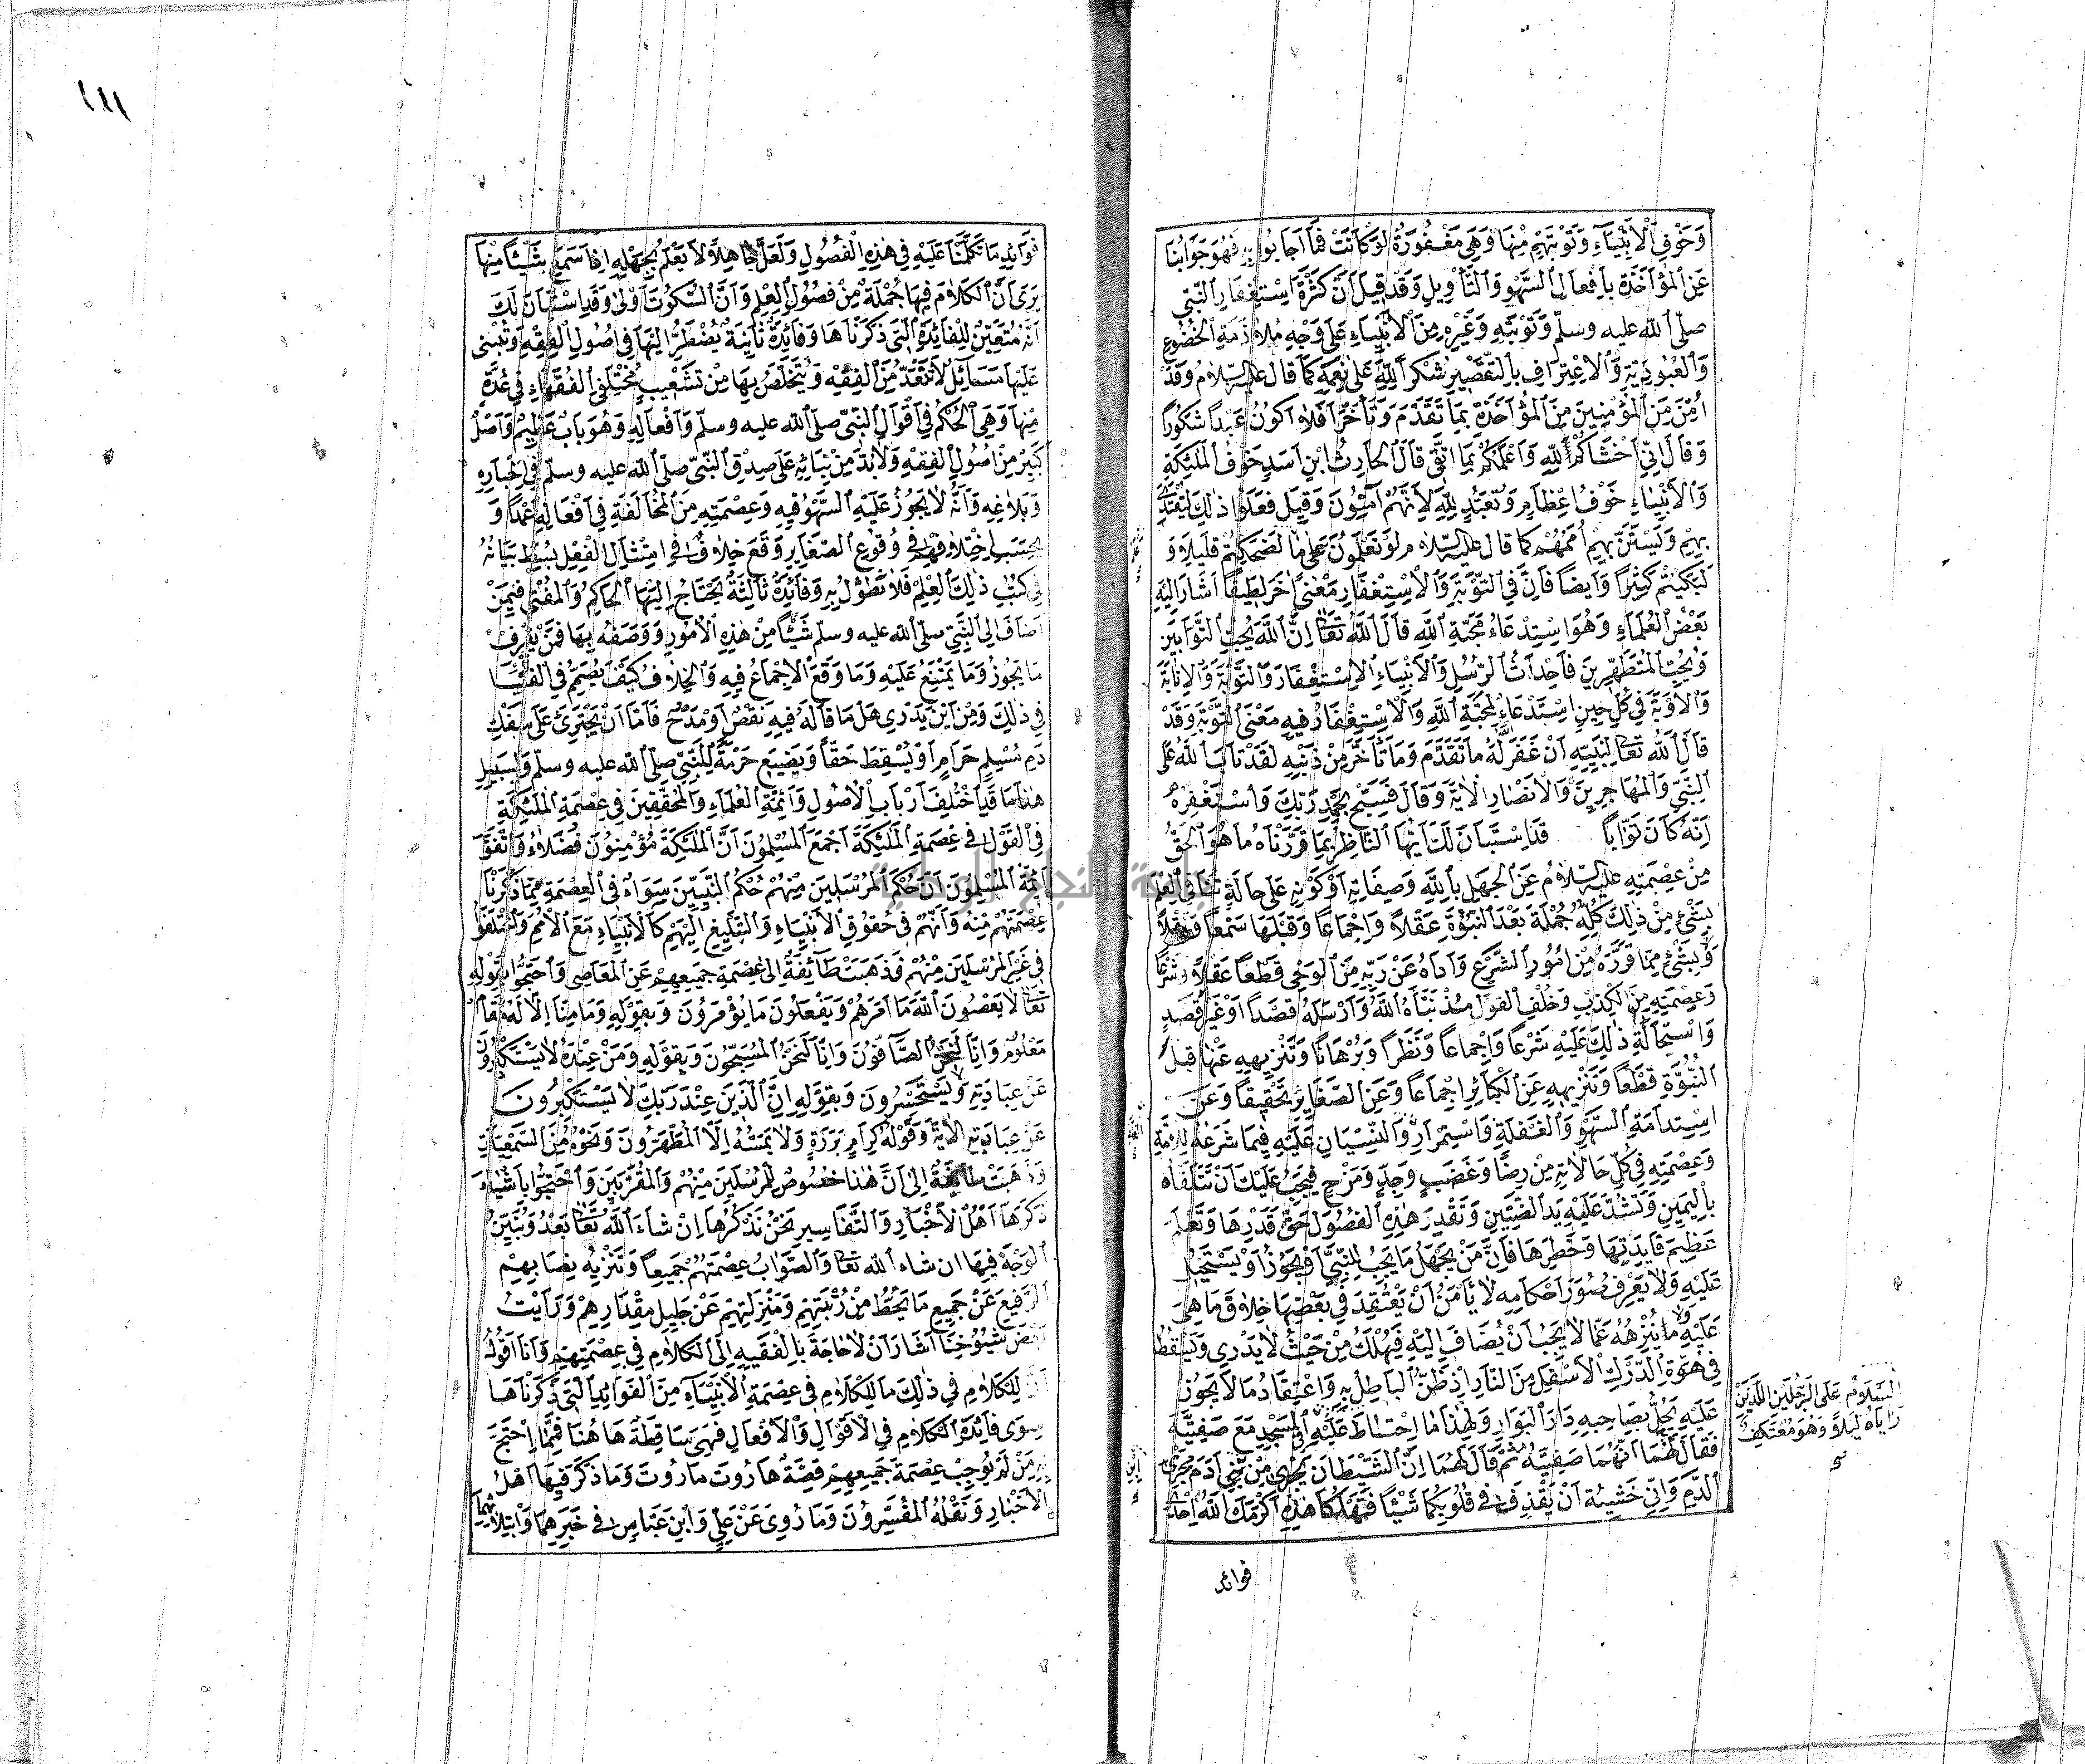 وَخَوْفِ الْاَنْبِيَاءِ وَتَوْبَتِهِمْ مِنْهَا وَهِيَ مَغْفُورَةٌ لَوْ كَانَتْ فَمَا اَجَابُوا بِهِ فَهُوَ جَوَابُنَا
عَنِ الْمُؤَاخَذَةِ بِاَفْعَالِ السَّهْوِ وَالتَّأْوِيلِ وَقَدْ قِيلَ اَنَّ كَثْرَةَ اسْتِغْفَارِ النَّبِيِّ
صلّى الله عليه وسلّم وَتَوْبَتِهِ وَغَيْرِهِ مِنَ الْاَنْبِيَاءِ عَلَى وَجْهِ مُلَازَمَةِ الْخُضُوعِ
وَالْعُبُودِيَّةِ وَالْاِعْتِرَافِ بِالتَّقْصِيرِ شُكْراً لِلّٰهِ عَلَى نِعَمِهِ كَمَا قَالَ عليه السّلام وَقَدْ
اَمِنَ مِنَ الْمُؤَاخَذَةِ بِمَا تَقَدَّمَ وَتَأَخَّرَ اَفَلَا اَكُونُ عَبْداً شَكُوراً
وَقَالَ اِنِّي اَخْشَاكُمْ لِلّٰهِ وَاَعْلَمُكُمْ بِمَا اَتَّقِي قَالَ الْحَارِثُ ابْنُ اَسَدٍ خَوْفُ الْمَلٰئِكَةِ
وَالْاَنْبِيَاءِ خَوْفُ اِعْظَامٍ وَتَعَبُّدٍ لِلّٰهِ لِاَنَّهُمْ آمِنُونَ وَقِيلَ فَعَلُوا ذٰلِكَ لِيُقْتَدَى
بِهِمْ وَيَسْتَنَّ بِهِمْ اُمَمُهُمْ كَمَا قَالَ عليه السّلام لَوْ تَعْلَمُونَ مَا اَعْلَمُ لَضَحِكْتُمْ قَلِيلاً وَ
لَبَكَيْتُمْ كَثِيراً وَاَيْضاً فَاِنَّ فِي التَّوْبَةِ وَالْاِسْتِغْفَارِ مَعْنًى آخَرَ لَطِيفاً اَشَارَ اِلَيْهِ
بَعْضُ الْعُلَمَاءِ وَهُوَ اسْتِدْعَاءُ مَحَبَّةِ اللّٰهِ قَالَ اللّٰهُ تَعَا اِنَّ اللّٰهَ يُحِبُّ التَّوَّابِينَ
وَيُحِبُّ الْمُتَطَهِّرِينَ فَاِحْدَاثُ الرُّسُلِ وَالْاَنْبِيَاءِ الْاِسْتِغْفَارَ وَالتَّوْبَةَ وَالْاِنَابَةَ
وَالْاَوْبَةَ فِي كُلِّ حِينٍ اسْتِدْعَاءٌ لِمَحَبَّةِ اللّٰهِ وَالْاِسْتِغْفَارُ فِيهِ مَعْنَى التَّوْبَةِ وَقَدْ
قَالَ اللّٰهُ تَعَا لِنَبِيِّهِ اَنْ غَفَرَ لَهُ مَا تَقَدَّمَ وَمَا تَأَخَّرَ مِنْ ذَنْبِهِ لَقَدْ تَابَ اللّٰهُ عَلَى
النَّبِيِّ وَالْمُهَاجِرِينَ وَالْاَنْصَارِ الْاٰيَةَ وَقَالَ فَسَبِّحْ بِحَمْدِ رَبِّكَ وَاسْتَغْفِرْهُ
اِنَّهُ كَانَ تَوَّاباً قَدِ اسْتَبَانَ لَكَ اَيُّهَا النَّاظِرُ بِمَا قَرَّرْنَاهُ مَا هُوَ الْحَقُّ
مِنْ عِصْمَتِهِ عليه السّلام عَنِ الْجَهْلِ بِاللّٰهِ وَصِفَاتِهِ اَوْ كَوْنِهِ عَلَى حَالَةٍ تُنَافِي الْعِلْمَ
بِشَيْءٍ مِنْ ذٰلِكَ كُلِّهِ جُمْلَةً بَعْدَ النُّبُوَّةِ عَقْلاً وَاِجْمَاعاً وَقَبْلَهَا سَمْعاً وَنَقْلاً
وَلَا بِشَيْءٍ مِمَّا قَرَّرَهُ مِنْ اُمُورِ الشَّرْعِ وَاَدَّاهُ عَنْ رَبِّهِ مِنَ الْوَحْيِ قَطْعاً عَقْلاً وَشَرْعاً
وَعِصْمَتِهِ مِنَ الْكَذِبِ وَخُلْفِ الْقَوْلِ مُنْذُ نَبَّأَهُ اللّٰهُ وَاَرْسَلَهُ قَصْداً اَوْ غَيْرَ قَصْدٍ
وَاسْتِحَالَةِ ذٰلِكَ عَلَيْهِ شَرْعاً وَاِجْمَاعاً وَنَظَراً وَبُرْهَاناً وَتَنْزِيهِهِ عَنْهَا قَبْلَ
النُّبُوَّةِ قَطْعاً وَتَنْزِيهِهِ عَنِ الْكَبَائِرِ اِجْمَاعاً وَعَنِ الصَّغَائِرِ تَحْقِيقاً وَعَنِ
اسْتِدَامَةِ السَّهْوِ وَالْغَفْلَةِ وَاسْتِمْرَارِ وَالنِّسْيَانِ عَلَيْهِ فِيمَا شَرَعَهُ لِلْاُمَّةِ
وَعِصْمَتِهِ فِي كُلِّ حَالَاتِهِ مِنْ رِضاً وَغَضَبٍ وَجِدٍّ وَمَزْحٍ فَيَجِبُ عَلَيْكَ اَنْ تَتَلَقَّاهُ
بِالْيَمِينِ وَتَشُدَّ عَلَيْهِ يَدَ الضَّنِينِ وَتُقَدِّرَ هٰذِهِ الْفُصُولَ حَقَّ قَدْرِهَا وَتَعْلَمَ
عَظِيمَ فَايِدَتِهَا وَخَطَرِهَا فَاِنَّ مَنْ يَجْهَلُ مَا يَجِبُ لِلنَّبِيِّ اَوْ يَجُوزُ اَوْ يَسْتَحِيلُ
عَلَيْهِ وَلَا يَعْرِفُ صُوَرَ اَحْكَامِهِ لَا يَأْمَنُ اَنْ يَعْتَقِدَ فِي بَعْضِهَا خِلَافَ مَا هِيَ
عَلَيْهِ وَلَا يُنَزِّهُهُ عَمَّا لَا يَجِبُ اَنْ يُضَافَ اِلَيْهِ فَيَهْلِكُ مِنْ حَيْثُ لَا يَدْرِي وَيَسْقُطُ
فِي هُوَّةِ الدَّرْكِ الْاَسْفَلِ مِنَ النَّارِ اِذْ ظَنُّ الْبَاطِلِ بِهِ وَاعْتِقَادُ مَا لَا يَجُوزُ
عَلَيْهِ يُحِلُّ بِصَاحِبِهِ دَارَ الْبَوَارِ وَلِهٰذَا مَا احْتَاطَ عَلَيْهِ فِي الْمَسْجِدِ مَعَ صَفِيَّةَ
فَقَالَ لَهُمَا اَنَّهُمَا صَفِيَّةُ ثُمَّ قَالَ لَهُمَا اِنَّ الشَّيْطَانَ يَجْرِي مِنْ بَنِي آدَمَ مَجْرَى
الدَّمِ وَاِنِّي خَشِيتُ اَنْ يَقْذِفَ فِي قُلُوبِكُمَا شَيْئاً فَتَهْلِكَا هٰذِهِ اَكْرَمَكَ اللّٰهُ اِحْدَى
السَّلَامُ عَلَى الرَّجُلَيْنِ اللَّذَيْنِ
رَأَيَاهُ لَيْلاً وَهُوَ مُعْتَكِفٌ
صح
فوائد
١١١
فَوَائِدِ مَا تَكَلَّمْنَا عَلَيْهِ فِي هٰذِهِ الْفُصُولِ وَلَعَلَّ جَاهِلاً لَا يَعْلَمُ بِجَهْلِهِ اِذَا سَمِعَ شَيْئاً مِنْهَا
يَرَى اَنَّ الْكَلَامَ فِيهَا جُمْلَةً مِنْ فُضُولِ الْعِلْمِ وَاَنَّ السُّكُوتَ اَوْلَى وَقَدِ اسْتَبَانَ لَكَ
اَنَّهُ مُتَعَيِّنٌ لِلْفَائِدَةِ الَّتِي ذَكَرْنَاهَا وَفَائِدَةٌ ثَانِيَةٌ يُضْطَرُّ اِلَيْهَا فِي اُصُولِ الْفِقْهِ وَتُبْنَى
عَلَيْهَا مَسَائِلُ لَا تَنْعَدُّ مِنَ الْفِقْهِ وَيُتَخَلَّصُ بِهَا مِنْ تَشْغِيبِ مُخْتَلِفِي الْفُقَهَاءِ فِي عِدَّةٍ
مِنْهَا وَهِيَ الْحُكْمُ فِي اَقْوَالِ النَّبِيِّ صلّى الله عليه وسلّم وَاَفْعَالِهِ وَهُوَ بَابٌ عَظِيمٌ وَاَصْلٌ
كَبِيرٌ مِنْ اُصُولِ الْفِقْهِ وَلَا بُدَّ مِنْ بِنَائِهِ عَلَى صِدْقِ النَّبِيِّ صلّى الله عليه وسلّم فِي اِخْبَارِهِ
وَبَلَاغِهِ وَاَنَّهُ لَا يَجُوزُ عَلَيْهِ السَّهْوُ فِيهِ وَعِصْمَتِهِ مِنَ الْمُخَالَفَةِ فِي اَفْعَالِهِ عَمْداً وَ
بِحَسَبِ اخْتِلَافِهِمْ فِي وُقُوعِ الصَّغَايِرِ وَقَعَ خِلَافٌ فِي امْتِثَالِ الْفِعْلِ بُسِطَ بَيَانُهُ
فِي كُتُبِ ذٰلِكَ الْعِلْمِ فَلَا نُطَوِّلُ بِهِ وَفَائِدَةٌ ثَالِثَةٌ يَحْتَاجُ اِلَيْهَا الْحَاكِمُ وَالْمُفْتِي فِيمَنْ
اَضَافَ اِلَى النَّبِيِّ صلّى الله عليه وسلّم شَيْئاً مِنْ هٰذِهِ الْاُمُورِ وَوَصَفَهُ بِهَا فَمَنْ لَمْ يَعْرِفْ
مَا يَجُوزُ وَمَا يَمْتَنِعُ عَلَيْهِ وَمَا وَقَعَ الْاِجْمَاعُ فِيهِ وَالْخِلَافُ كَيْفَ يُصَمِّمُ فِي الْفُتْيَا
فِي ذٰلِكَ وَمِنْ اَيْنَ يَدْرِي هَلْ مَا قَالَهُ فِيهِ نَقْصٌ اَوْ مَدْحٌ فَاِمَّا اَنْ يَجْتَرِئَ عَلَى سَفْكِ
دَمِ مُسْلِمٍ حَرَامٍ اَوْ يُسْقِطَ حَقًّا وَيُضِيعَ حُرْمَةً لِلنَّبِيِّ صلّى الله عليه وسلّم وَبِسَبِيلِ
هٰذَا مَا قَدِ اخْتَلَفَ اَرْبَابُ الْاُصُولِ وَاَئِمَّةُ الْعُلَمَاءِ وَالْمُحَقِّقِينَ فِي عِصْمَةِ الْمَلٰئِكَةِ
فِي الْقَوْلِ فِي عِصْمَةِ الْمَلٰئِكَةِ اَجْمَعَ الْمُسْلِمُونَ اَنَّ الْمَلٰئِكَةَ مُؤْمِنُونَ فُضَلَاءُ وَاتَّفَقَ
اَئِمَّةُ الْمُسْلِمُونَ اَنَّ حُكْمَ الْمُرْسَلِينَ مِنْهُمْ حُكْمُ النَّبِيِّينَ سَوَاءٌ فِي الْعِصْمَةِ مِمَّا ذَكَرْنَا
عِصْمَتَهُمْ مِنْهُ وَاَنَّهُمْ فِي حُقُوقِ الْاَنْبِيَاءِ وَالتَّبْلِيغِ اِلَيْهِمْ كَالْاَنْبِيَاءِ مَعَ الْاُمَمِ وَاخْتَلَفُوا
فِي غَيْرِ الْمُرْسَلِينَ مِنْهُمْ فَذَهَبَتْ طَائِفَةٌ اِلَى عِصْمَةِ جَمِيعِهِمْ عَنِ الْمَعَاصِي وَاحْتَجُّوا بِقَوْلِهِ
تَعَا لَا يَعْصُونَ اللّٰهَ مَا اَمَرَهُمْ وَيَفْعَلُونَ مَا يُؤْمَرُونَ وَبِقَوْلِهِ وَمَا مِنَّا اِلَّا لَهُ مَقَامٌ
مَعْلُومٌ وَاِنَّا لَنَحْنُ الصَّافُّونَ وَاِنَّا لَنَحْنُ الْمُسَبِّحُونَ وَبِقَوْلِهِ وَمَنْ عِنْدَهُ لَا يَسْتَكْبِرُونَ
عَنْ عِبَادَتِهِ وَلَا يَسْتَحْسِرُونَ وَبِقَوْلِهِ اِنَّ الَّذِينَ عِنْدَ رَبِّكَ لَا يَسْتَكْبِرُونَ
عَنْ عِبَادَتِهِ الْاٰيَةَ وَقَوْلُهُ كِرَامٍ بَرَرَةٍ وَلَا يَمَسُّهُ اِلَّا الْمُطَهَّرُونَ وَنَحْوُهُ مِنَ السَّمْعِيَّاتِ
وَذَهَبَتْ طَائِفَةٌ اِلَى اَنَّ هٰذَا خُصُوصٌ لِلْمُرْسَلِينَ مِنْهُمْ وَالْمُقَرَّبِينَ وَاحْتَجُّوا بِاَشْيَاءَ
ذَكَرَهَا اَهْلُ الْاَخْبَارِ وَالتَّفَاسِيرِ نَحْنُ نَذْكُرُهَا اِنْ شَاءَ اللّٰهُ تَعَا بَعْدُ وَنُبَيِّنُ
الْوَجْهَ فِيهَا ان شاء الله تعا وَالصَّوَابُ عِصْمَتُهُمْ جَمِيعاً وَتَنْزِيهُ نِصَابِهِمْ
الرَّفِيعِ عَنْ جَمِيعِ مَا يَحُطُّ مِنْ رُتْبَتِهِمْ وَمَنْزِلَتِهِمْ عَنْ جَلِيلِ مِقْدَارِهِمْ وَرَأَيْتُ
بَعْضَ شُيُوخِنَا اَشَارَ اَنْ لَا حَاجَةَ بِالْفَقِيهِ اِلَى الْكَلَامِ فِي عِصْمَتِهِمْ وَاَنَا اَقُولُ
اَنَّ لِلْكَلَامِ فِي ذٰلِكَ مَا لِلْكَلَامِ فِي عِصْمَةِ الْاَنْبِيَاءِ مِنَ الْفَوَائِدِ الَّتِي ذَكَرْنَاهَا
سِوَى فَائِدَةِ الْكَلَامِ فِي الْاَقْوَالِ وَالْاَفْعَالِ فَهِيَ سَاقِطَةٌ هَاهُنَا فَمِمَّا احْتَجَّ
بِهِ مَنْ لَمْ يُوجِبْ عِصْمَةَ جَمِيعِهِمْ قِصَّةُ هَارُوتَ مَارُوتَ وَمَا ذَكَرَ فِيهَا اَهْلُ
الْاَخْبَارِ وَنَقَلَهُ الْمُفَسِّرُونَ وَمَا رُوِيَ عَنْ عَلِيٍّ وَابْنِ عَبَّاسٍ فِي خَبَرِهِمَا وَابْتِلَائِهِمَا
جامعة النجاح الوطنية